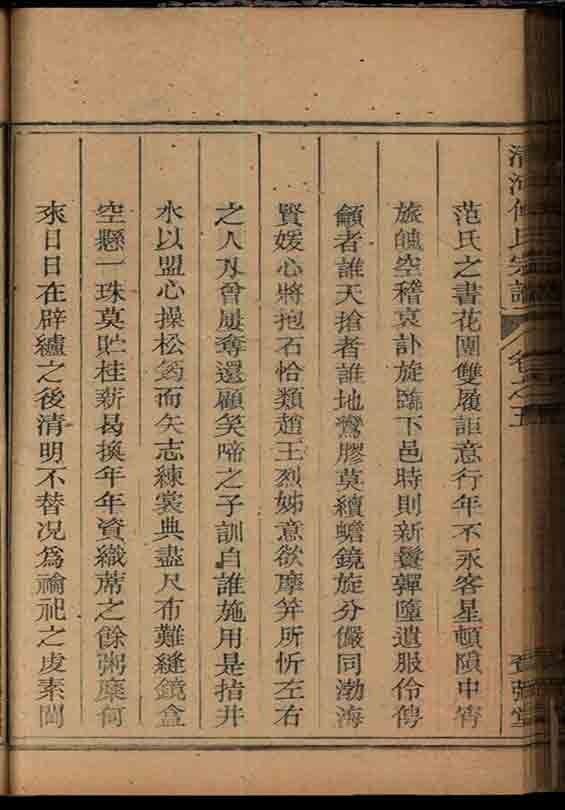 清河傅氏宗譜 卷之五
范氏之書花團雙履詎意行年不永客星頓隕中宵
旅魄空稽哀訃旋臨下邑時則新鬟嚲墮遺服伶俜
籲者誰天搶者誰地鸞膠莫續蟾鏡旋分儼同渤海
賢媛心將抱石恰類趙王烈姊意欲摩笄所忻左右
之人刄曾屢奪還顧笑啼之子訓自誰施用是指井
水以盟心操松筠而矢志練裳典盡尺布難縫鏡盒
空懸一珠莫貯桂薪曷換年年資織蓆之餘粥糜何
來日日在辟纑之後清明不替况為禴祀之虔素闈